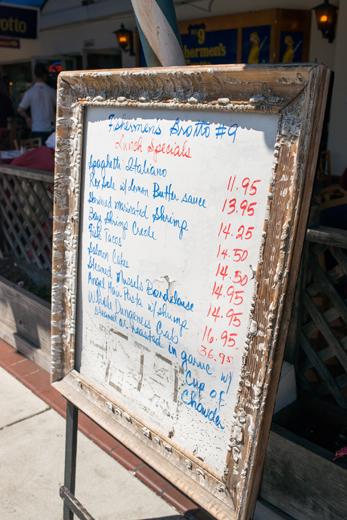 otto
No 9
Fishermen's
Grotto
Fishermens Grotto #9
Lunch Specials
Spaghetti Italiano 11.95
Rex Sole w/ Lemon Butter sauce 13.95
Skewered marinated Shrimp 14.25
Bay Shrimp Creole 14.50
Fish Tacos 14.50
Salmon Cakes 14.95
Steamed Mussels Bordelaise 14.95
Angel Hair Pasta w/ shrimp 16.95
Whole Dungeness Crab 36.95
steamed or roasted in garlic w/
Cup of
Chowder